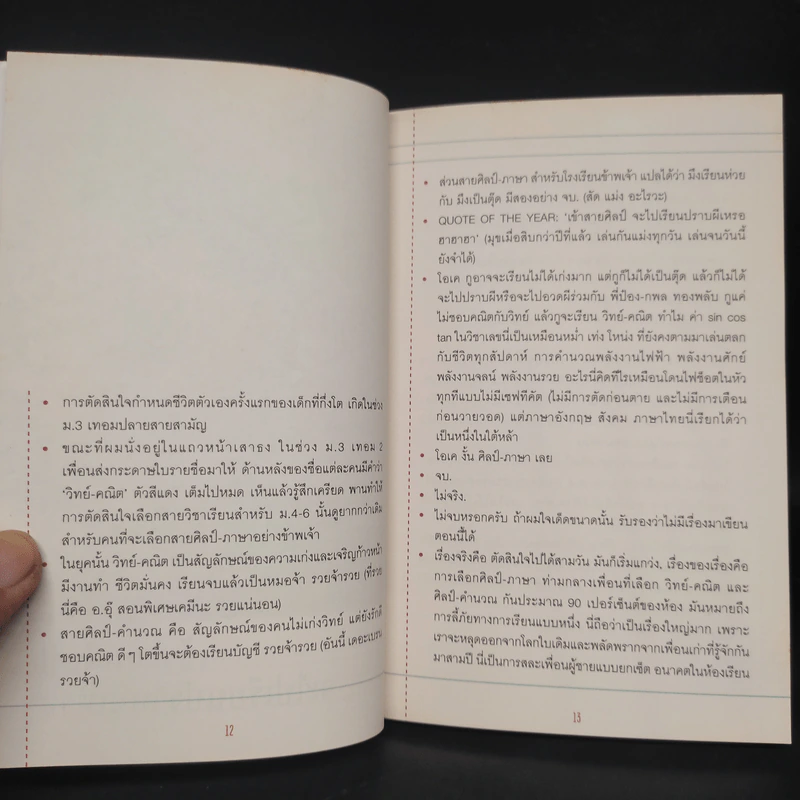 • การตัดสินใจกำหนดชีวิตตัวเองครั้งแรกของเด็กที่กึ่งโต เกิดในช่วง
ม.3 เทอมปลายสายสามัญ
• ขณะที่ผมนั่งอยู่ในแถวหน้าเสาธง ในช่วง ม.3 เทอม 2
เพื่อนส่งกระดาษใบรายชื่อมาให้ ด้านหลังของชื่อแต่ละคนมีคำว่า
'วิทย์-คณิต' ตัวสีแดง เต็มไปหมด เห็นแล้วรู้สึกเครียด พานทำให้
การตัดสินใจเลือกสายวิชาเรียนสำหรับ ม.4-6 นั้นดูยากกว่าเดิม
สำหรับคนที่จะเลือกสายศิลป์-ภาษาอย่างข้าพเจ้า
• ในยุคนั้น วิทย์-คณิต เป็นสัญลักษณ์ของความเก่งและเจริญก้าวหน้า
มีงานทำ ชีวิตมั่นคง เรียนจบแล้วเป็นหมอจ้า รวยจ้ารวย (ที่รวย
นี่คือ อ.อุ๊ สอนพิเศษเคมีนะ รวยแน่นอน)
• สายศิลป์-คำนวณ คือ สัญลักษณ์ของคนไม่เก่งวิทย์ แต่ยังรักดี
ชอบคณิต ดีๆ โตขึ้นจะต้องเรียนบัญชี รวยจ้ารวย (อันนี้ เดอะเบรน
รวยจ้า)
12
• ส่วนสายศิลป์-ภาษา สำหรับโรงเรียนข้าพเจ้า แปลได้ว่า มึงเรียนห่วย
กับ มึงเป็นตุ๊ด มีสองอย่าง จบ. (สัด แม่ง อะไรวะ)
• QUOTE OF THE YEAR: 'เข้าสายศิลป์ จะไปเรียนปราบผีเหรอ
ฮาฮาฮา' (มุขเมื่อสิบกว่าปีที่แล้ว เล่นกันแม่งทุกวัน เล่นจนวันนี้
ยังจำได้)
• โอเค กูอาจจะเรียนไม่ได้เก่งมาก แต่กูก็ไม่ได้เป็นตุ๊ด แล้วก็ไม่ได้
จะไปปราบผีหรือจะไปอวดผีร่วมกับ พี่ป๋อง-กพล ทองพลับ กูแค่
ไม่ชอบคณิตกับวิทย์ แล้วกูจะเรียน วิทย์-คณิต ทำไม ค่า sin cos
tan ในวิชาเลขนี่เป็นเหมือนหม่ำ เท่ง โหน่ง ที่ยังคงตามมาเล่นตลก
กับชีวิตทุกสัปดาห์ การคำนวณพลังงานไฟฟ้า พลังงานศักย์
พลังงานจลน์ พลังงานรวย อะไรนี่คิดทีไรเหมือนโดนไฟช็อตในหัว
ทุกทีแบบไม่มีเซฟทีคัต (ไม่มีการตัดก่อนตาย และไม่มีการเตือน
ก่อนวายวอด) แต่ภาษาอังกฤษ สังคม ภาษาไทยนี่เรียกได้ว่า
เป็นหนึ่งในใต้หล้า
• โอเค งั้น ศิลป์-ภาษา เลย
• จบ.
• ไม่จริง.
• ไม่จบหรอกครับ ถ้าผมใจเด็ดขนาดนั้น รับรองว่าไม่มีเรื่องมาเขียน
ตอนนี้ได้
• เรื่องจริงคือ ตัดสินใจไปได้สามวัน มันก็เริ่มแกว่ง, เรื่องของเรื่องคือ
การเลือกศิลป์-ภาษา ท่ามกลางเพื่อนที่เลือก วิทย์-คณิต และ
ศิลป์-คำนวณ กันประมาณ 90 เปอร์เซ็นต์ของห้อง มันหมายถึง
การลี้ภัยทางการเรียนแบบหนึ่ง นี่ถือว่าเป็นเรื่องใหญ่มาก เพราะ
เราจะหลุดออกจากโลกใบเดิมและพลัดพรากจากเพื่อนเก่าที่รู้จักกัน
มาสามปี นี่เป็นการสละเพื่อนผู้ชายแบบยกเซ็ต อนาคตในห้องเรียน
13